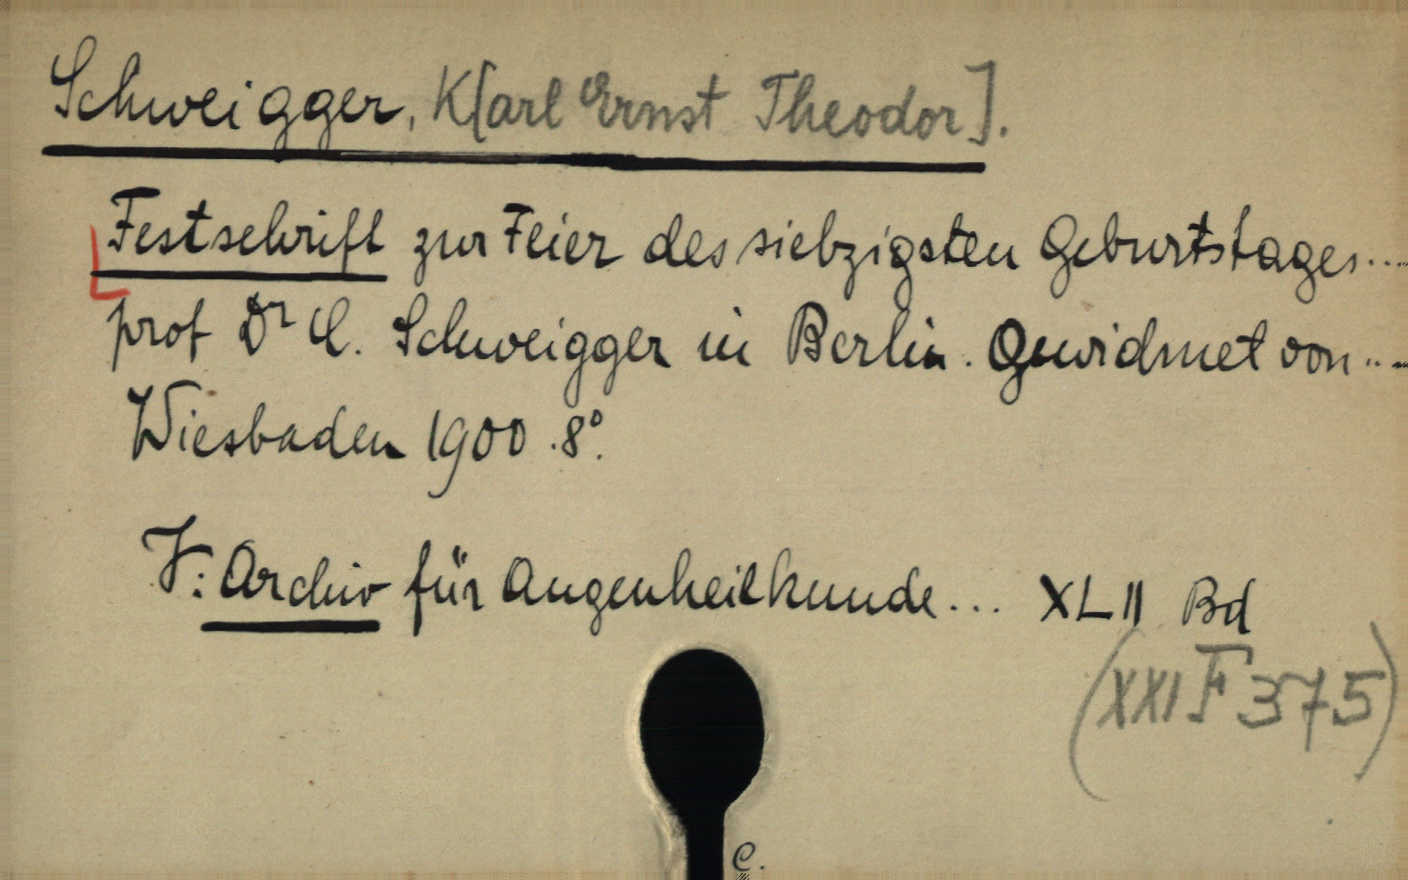 Schweigger, K[arl Ernst Theodor].
Festschrift zur Feier des siebzigsten Geburtstages...
prof Dr C. Schweigger in Berlin. Gewidmet von...
Wiesbaden 1900. 8°.
V: Archiv für Augenheilkunde... XLII Bd
(XXI F 375)
C.